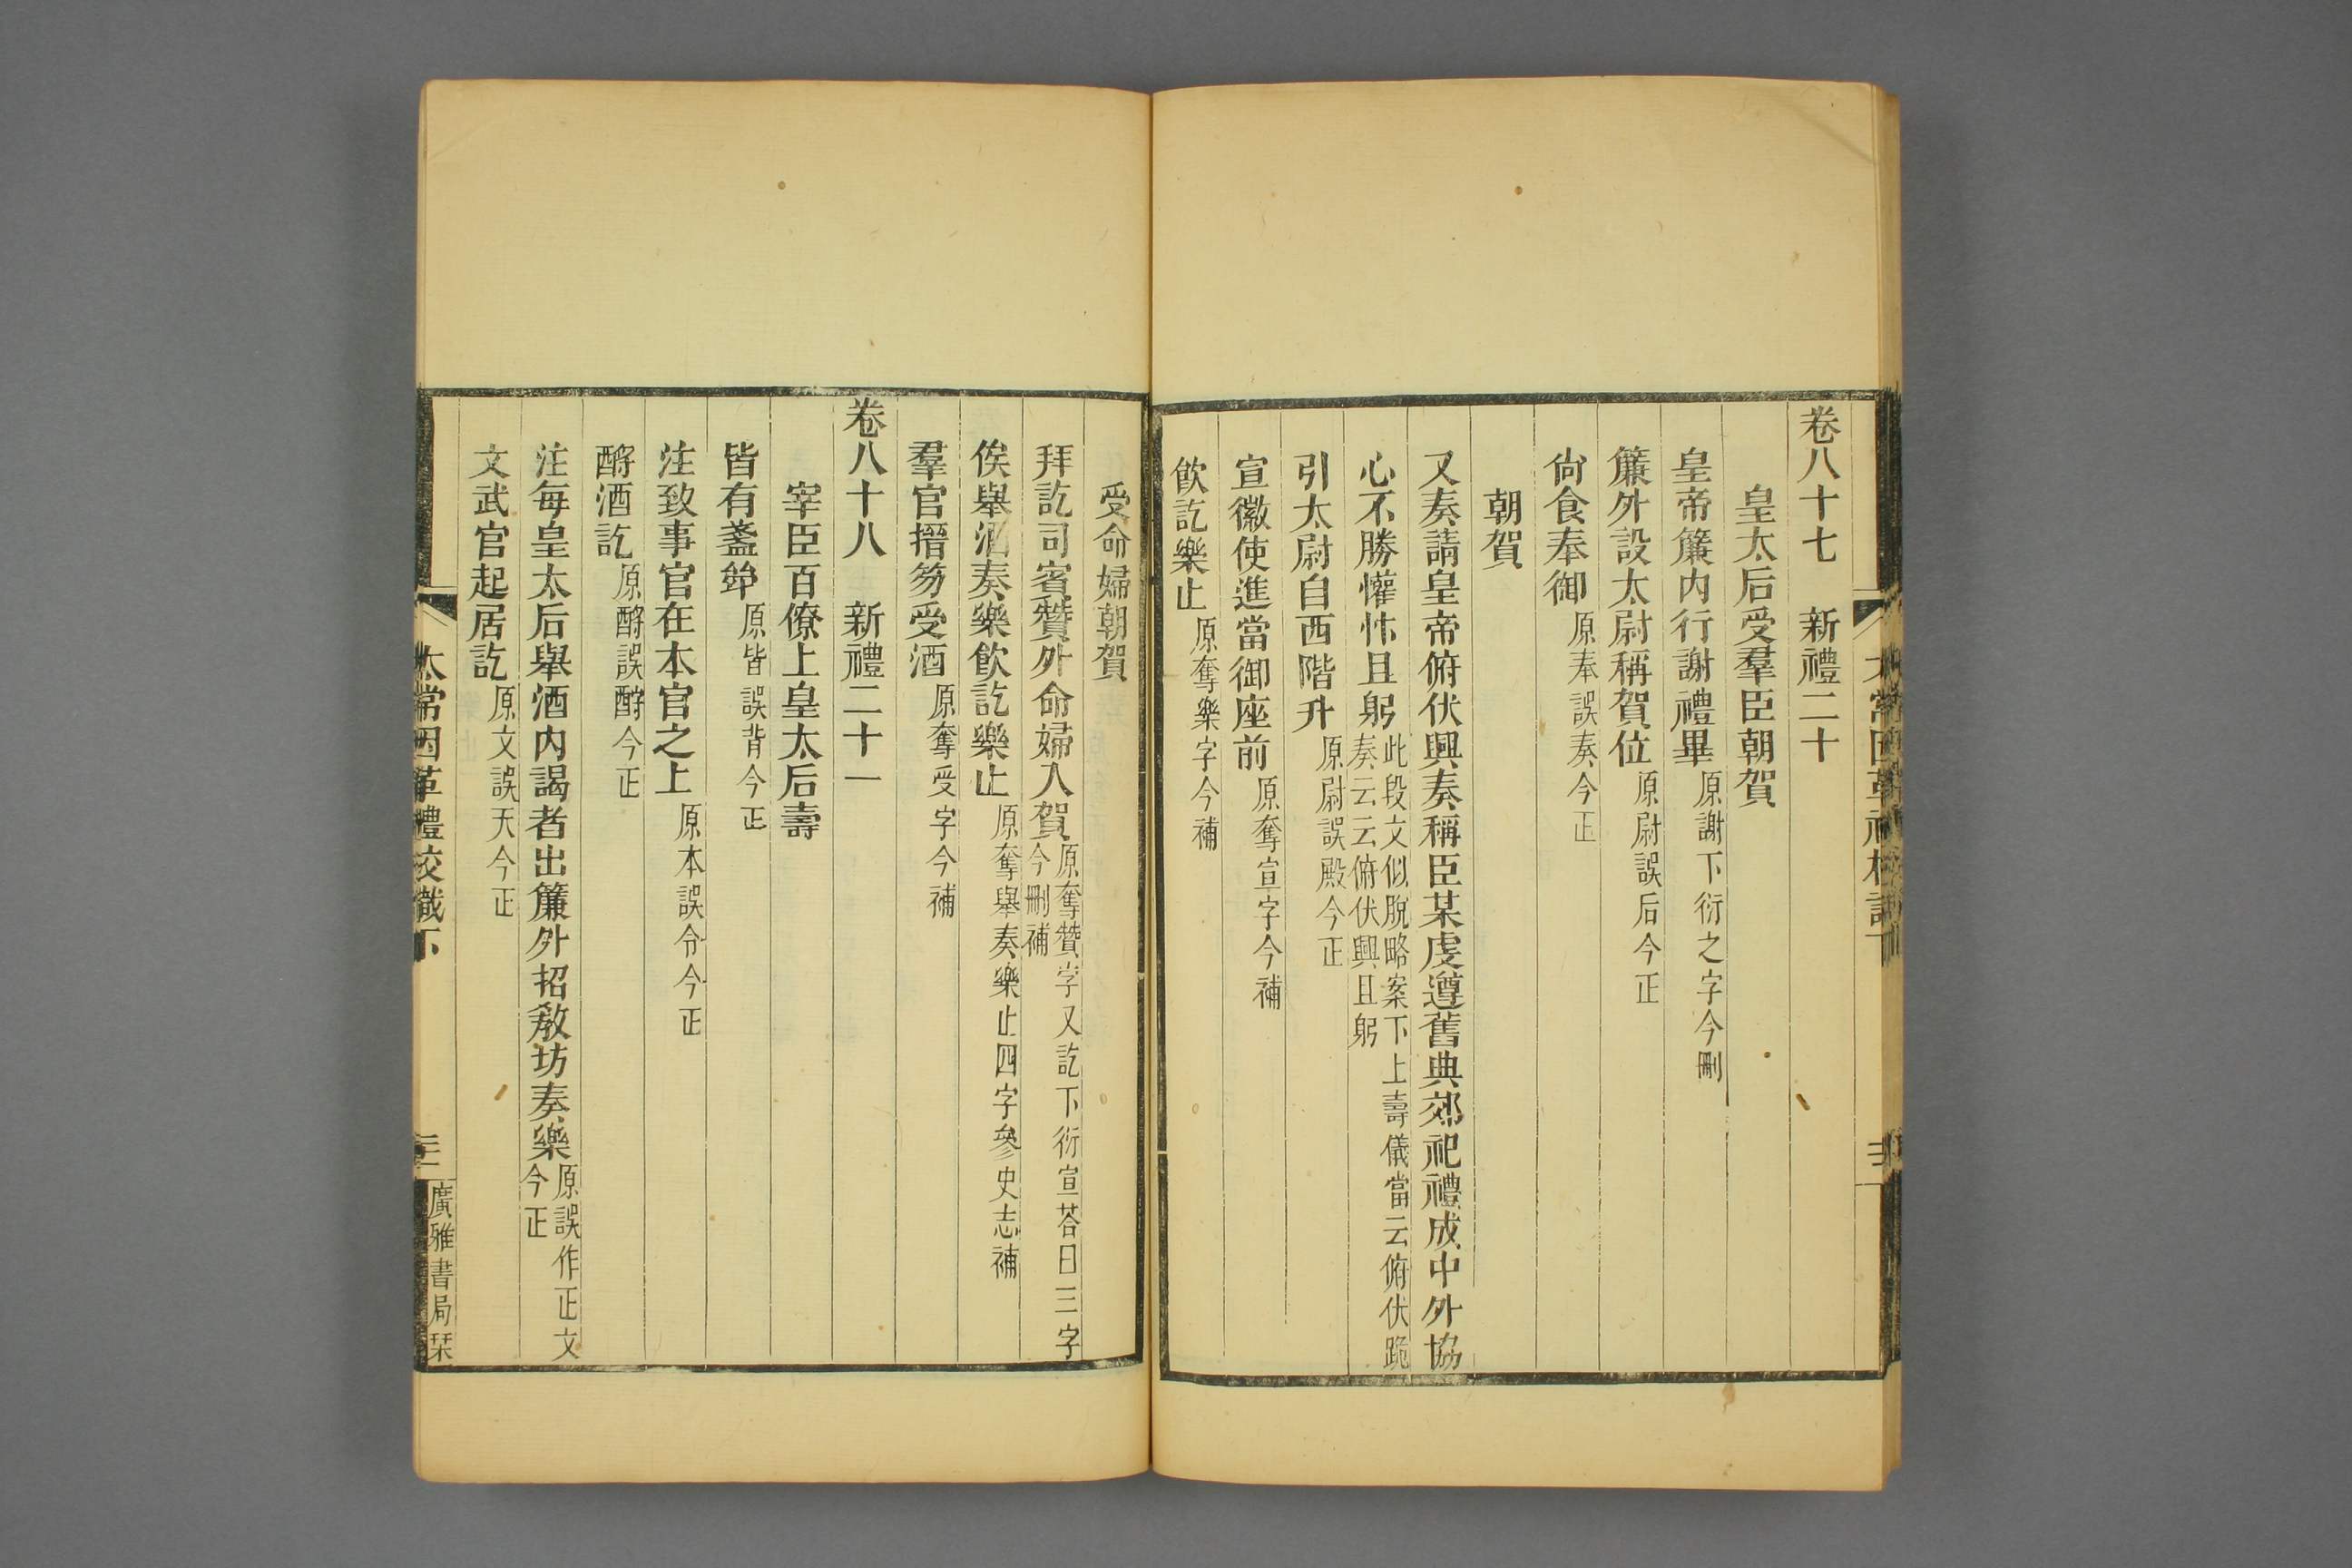 卷八十七　新禮二十
皇太后受羣臣朝賀
皇帝簾内行謝禮畢原謝下衍之字今刪
簾外設太尉稱賀位原尉誤后今正
尙食奉御原奉誤奏今正
朝賀
又奏請皇帝俯伏興奏稱臣某虔遵舊典郊祀禮成中外協
心不勝懽忭且躬此段文似脫略案下上壽儀當云俯伏跪奏云云俯伏興且躬
引太尉自西階升原尉誤殿今正
宣徽使進當御座前原奪宣字今補
飮訖樂止原奪樂字今補
受命婦朝賀
拜訖司賓贊外命婦入賀原奪贊字又訖下衍宣荅曰三字今刪補
俟舉酒奏樂飮訖樂止原奪舉奏樂止四字參史志補
羣官搢笏受酒原奪受字今補
卷八十八　新禮二十一
宰臣百僚上皇太后壽
皆有盞斚原皆誤背今正
注致事官在本官之上原本誤令今正
酹酒訖原酹誤酧今正
注每皇太后舉酒内謁者出簾外招敎坊奏樂原誤作正文今正
文武官起居訖原文誤天今正
太常因革禮校識下
廣雅書局栞